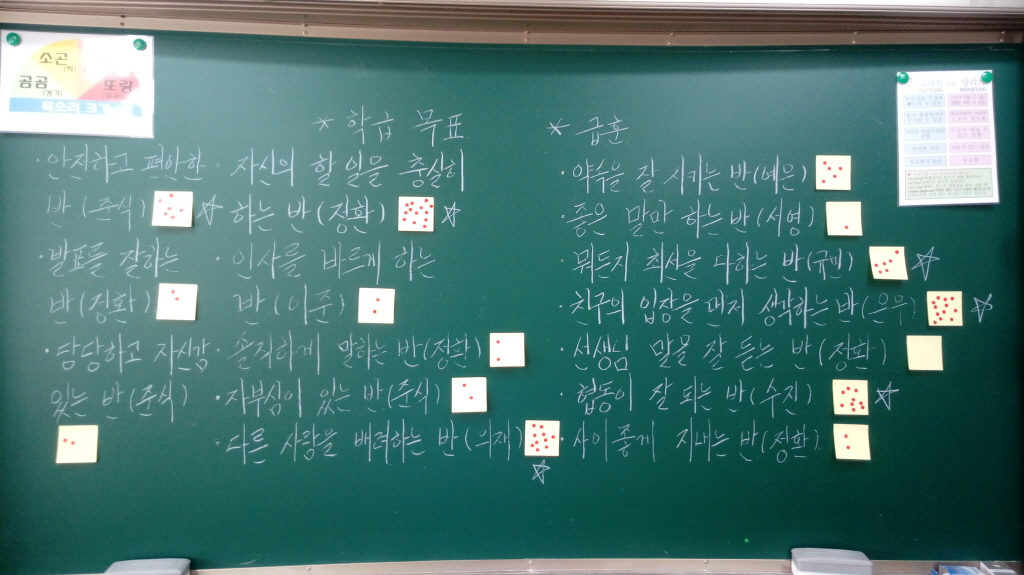 소곤
곰곰
또랑
목소리 크기
REPORTING
* 학급 목표
· 안전하고 편안한
반 (준식)
· 발표를 잘하는
반 (정환)
· 당당하고 자신감
있는 반 (준식)
· 자신의 할 일을 충실히
하는 반 (정환)
· 인사를 바르게 하는
반 (이준)
· 솔직하게 말하는 반 (정환)
· 자부심이 있는 반 (준식)
· 다른 사람을 배려하는 반 (의재)
* 급훈
· 약속을 잘 지키는 반 (예은)
· 좋은 말만 하는 반 (서영)
· 뭐든지 최선을 다하는 반 (규민)
· 친구의 입장을 먼저 생각하는 반 (은우)
· 선생님 말씀 잘 듣는 반 (정환)
· 협동이 잘 되는 반 (수진)
· 사이좋게 지내는 반 (정환)